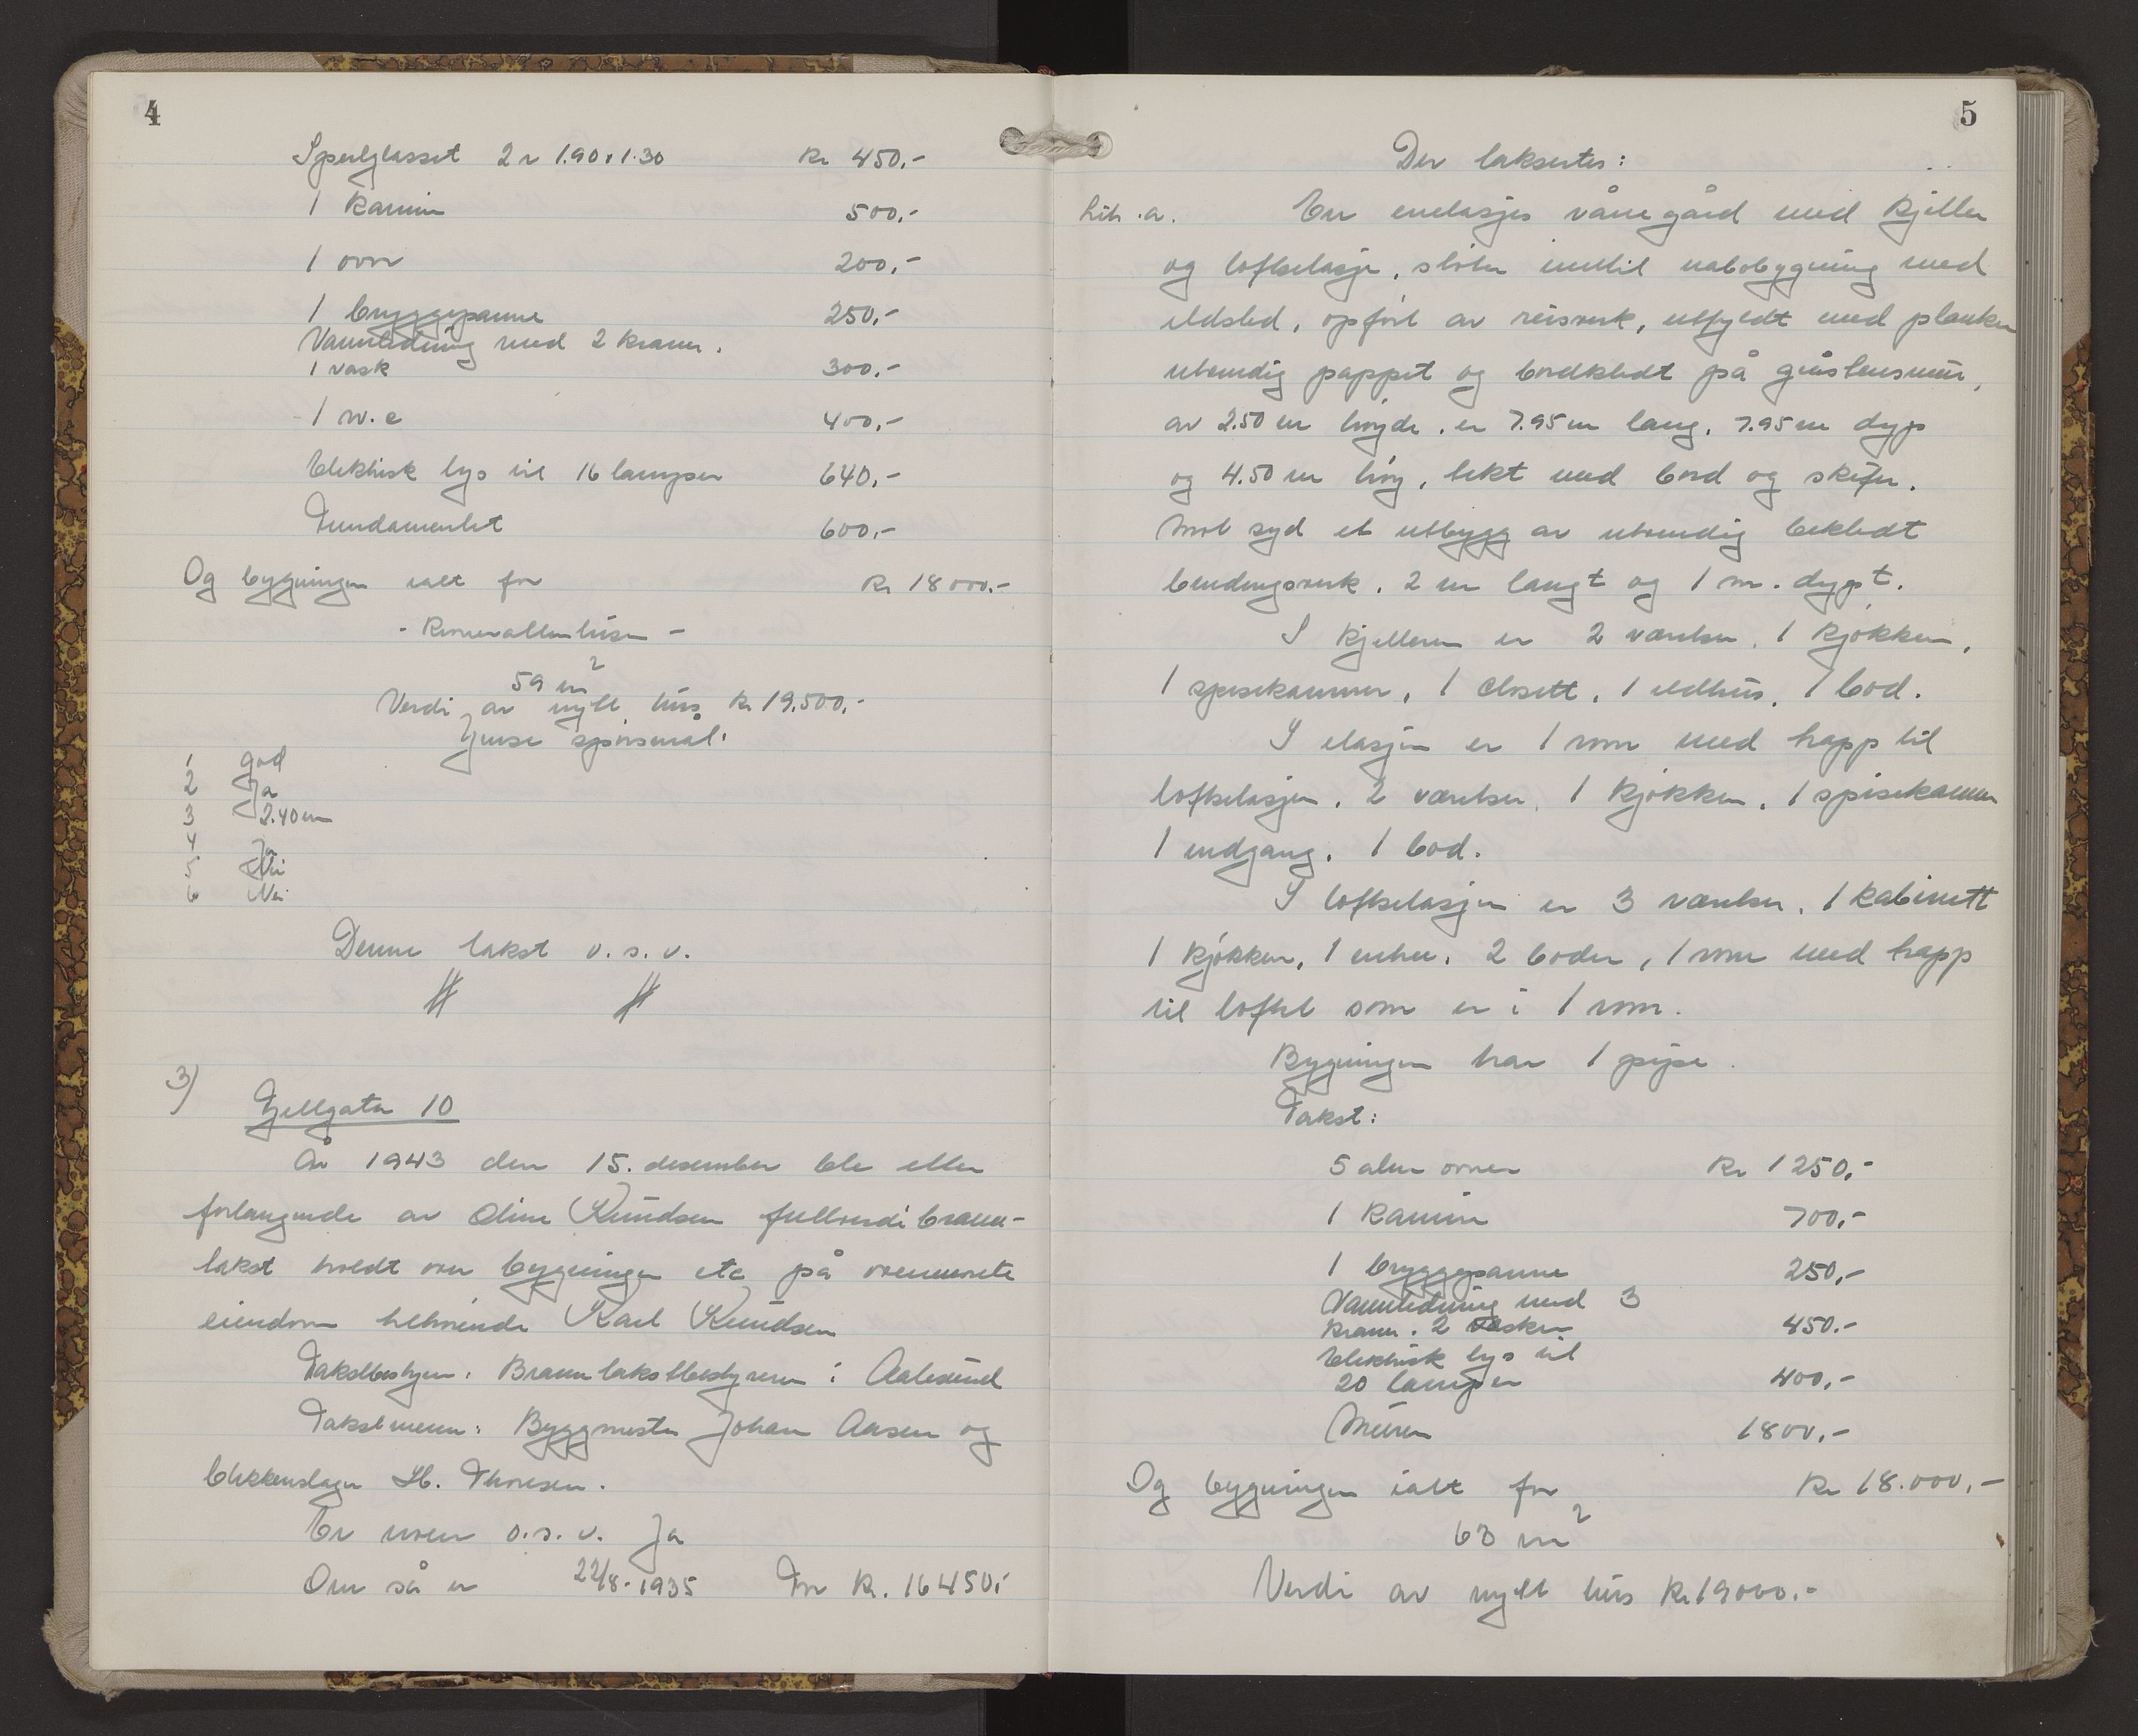 4
Speilglasset 2 a 1.90 x 1.30 Kr 450.-
1 Kamin 500.-
1 ovn 200.-
1 bryggepanne 250.-
Vannledning med 2 kraner.
1 vask 300.-
1 w.c 400.-
Elektrisk lys til 16 lamper 640.-
Fundamentet 600.-
Og bygningen ialt for Kr 18000.-
59 m2
Verdi av nytt hus kr 19.500.-
Jense spørsmål:
1 god
2 Ja
3 2.40 m
4 Ja
5 Nei
6 Nei
Denne takst o.s.v.
3)
Fjellgata 10
År 1943 den 15. desember ble etter
forlangende av Oline Knudsen fullverdi brann-
takst holdt over bygningen etc på ovennevnte
eiendom tilhørende Karl Knudsen
Takstbestyrer: Branntakstbestyreren i Aalesund
Takstmenn: Byggmester Johan Aasen og
blikkenslager H. Thoresen.
Er noen o.s.v. Ja
Om så er 22/8-1935 For Kr. 16450.-
5
Der takserte:
Litr. a. En enetasjes vånegård med kjeller
og loftsetasje, støter inntil nabobygning med
ildsted, opført av reisverk, utfyldt med planker
utvendig pappet og bordkledt på gråstensmur,
av 2.50 m høyde, er 7.95 m lang, 7.95 m dyp
og 4.50 m høy, tekt med bord og skifer.
Mot syd et utbygg av utvendig bekledt
bindingsverk, 2 m langt og 1 m. dypt.
I kjelleren er 2 værelser, 1 kjøkken,
1 spisekammer, 1 closett, 1 ildhus, 1 bod.
I etasjen er 1 rom med trapp til
loftsetasjen, 2 værelser, 1 kjøkken, 1 spisekammer
1 indgang, 1 bod.
I loftsetasjen er 3 værelser, 1 kabinett
1 kjøkken, 1 entre, 2 boder, 1 rom med trapp
til loftet som er i 1 rom.
Bygningen har 1 pipe.
Takst:
5 alm ovner Kr 1250.-
1 Kamin 700.-
1 bryggepanne 250.-
Vannledning med 3
kraner. 2 vasker 450.-
Elektrisk lys til
20 lamper 400.-
Muren 1800.-
Og bygningen ialt for Kr 18.000.-
63 m2
Verdi av nytt hus Kr 19000.-